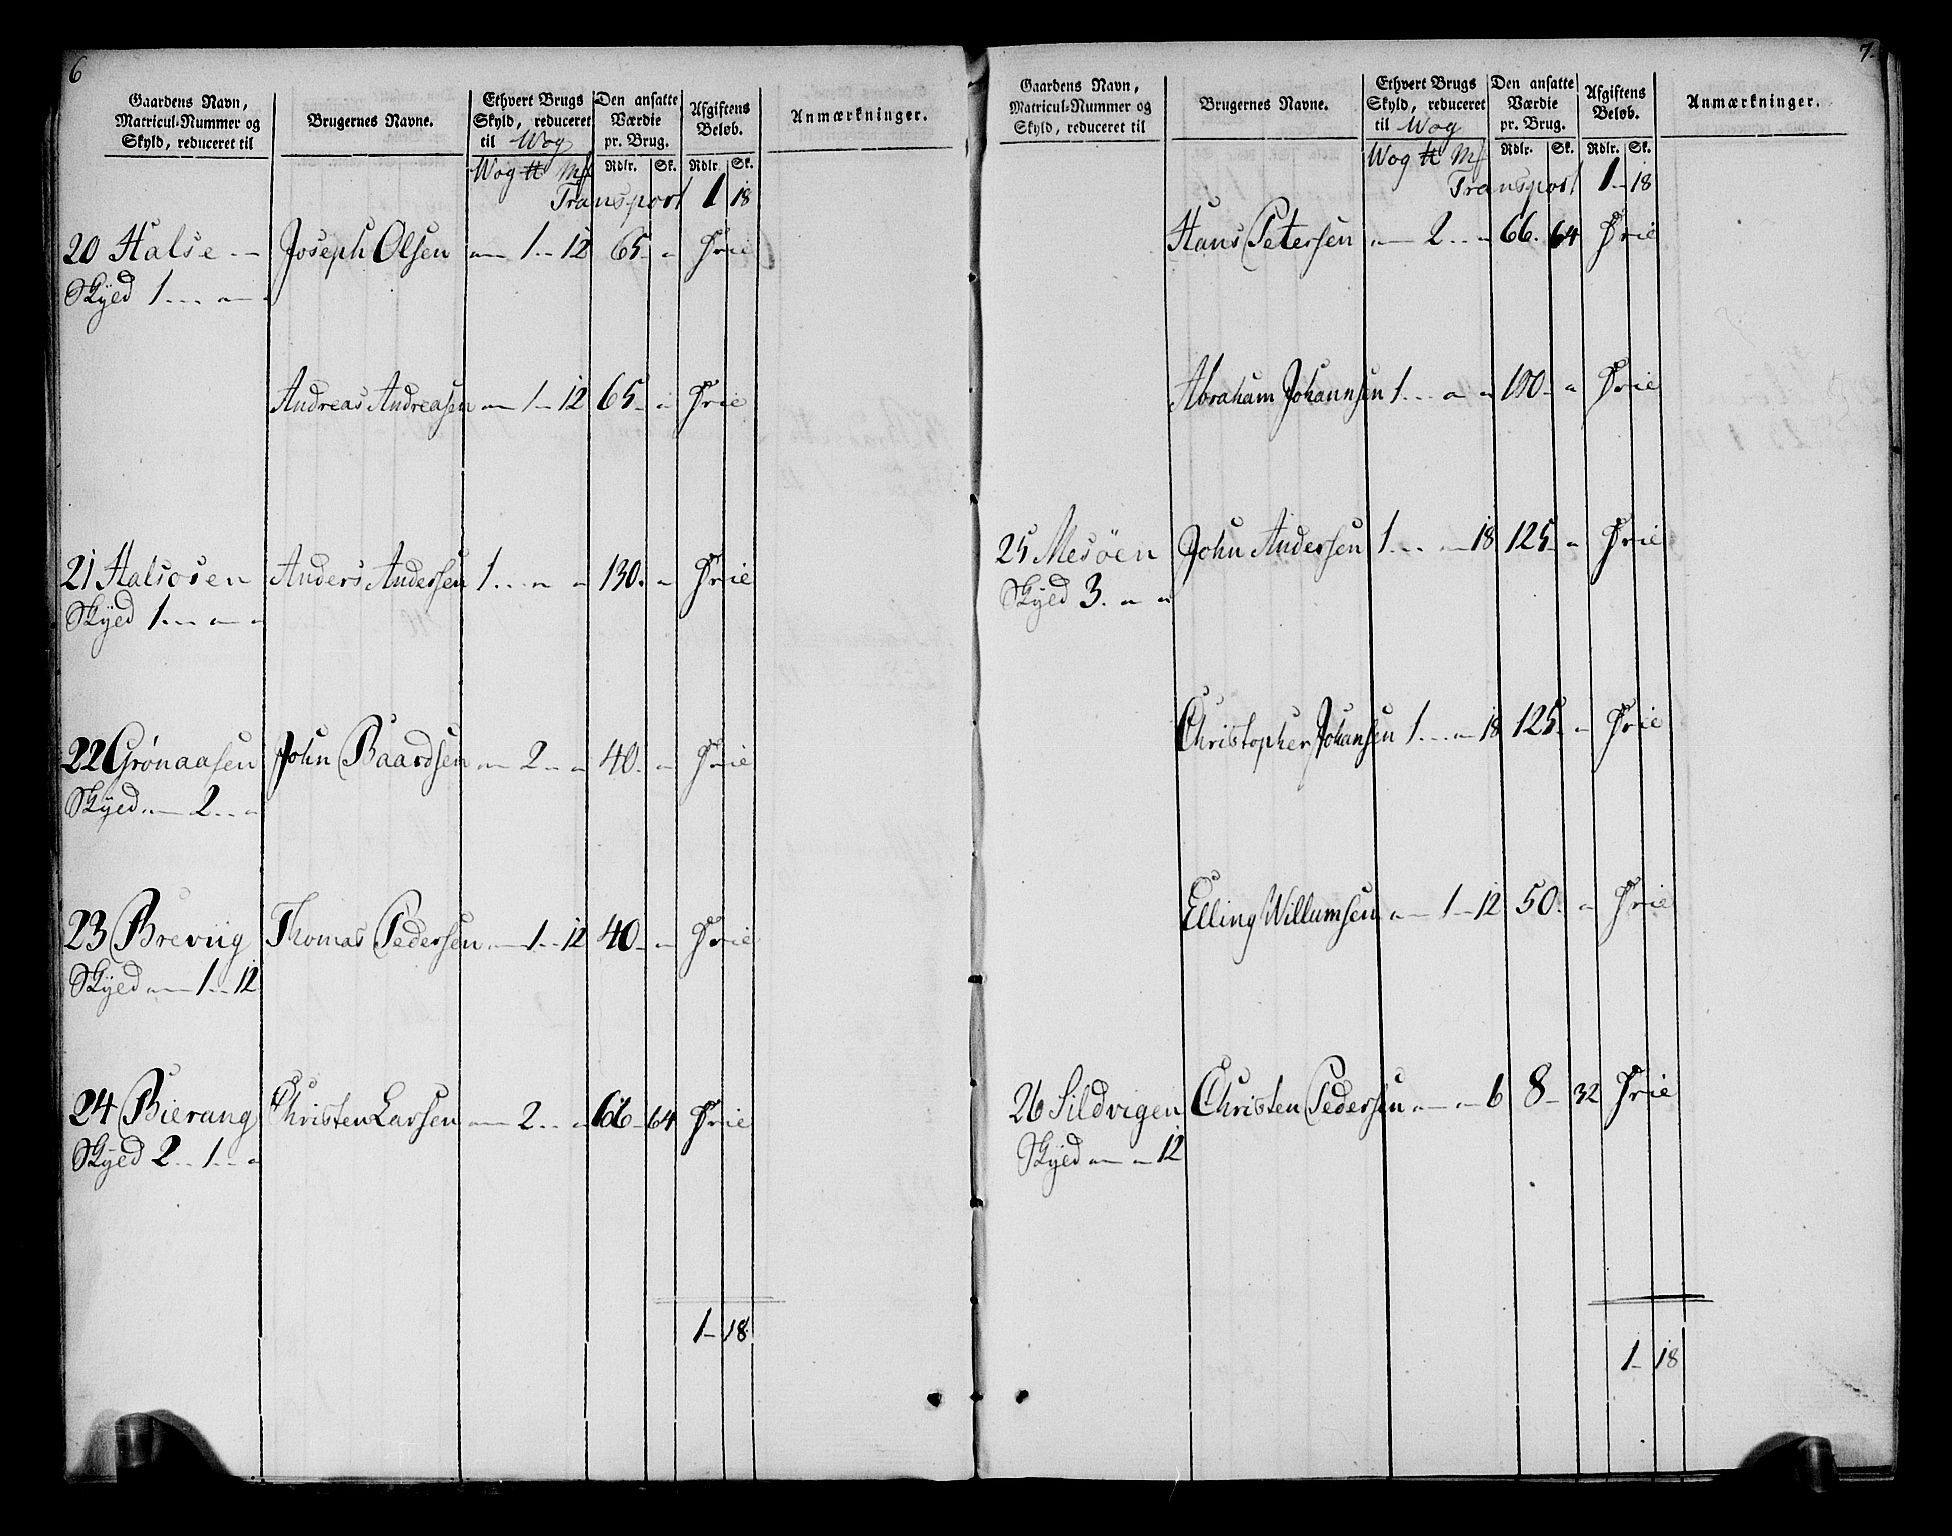 6
Gaardens Navn, Matricul-Nummer og Skyld, reduceret til
Brugernes Navne.
Ethvert Brugs Skyld, reduceret til Wog
Den ansatte Værdie pr. Brug.
Afgiftens Beløb.
Anmærkninger.
Wog ℔ Mk Rdlr. Sk. Rdlr. Sk.
Transport 1 18
20 Halse Joseph Olsen - 1 - 12 65 - Frie
Skyld 1 - -
Andreas Andreasen - 1 - 12 65 - Frie
21 Halsosen Anders Andersen 1 - - 130 - Frie
Skyld 1 - -
22 Grønaasen John Baardsen - 2 - 40 - Frie
Skyld - 2 -
23 Brevig Thomas Pedersen - 1 - 12 40 - Frie
Skyld - 1 - 12
24 Bierang Christen Larsen - 2 - 66 - 64 Frie
Skyld 2 - 1 -
1 - 18
7
Gaardens Navn, Matricul-Nummer og Skyld, reduceret til
Brugernes Navne.
Ethvert Brugs Skyld, reduceret til Wog
Den ansatte Værdie pr. Brug.
Afgiftens Beløb.
Anmærkninger.
Wog ℔ Mk Rdlr. Sk. Rdlr. Sk.
Transport 1 - 18
Hans Petersen - 2 - 66 64 Frie
Abraham Johannsen 1 - - 100 - Frie
25 Mesøen John Andersen 1 - 18 125 - Frie
Skyld 3 - -
Christopher Johansen 1 - 18 125 - Frie
Elling Willumsen - 1 - 12 50 - Frie
26 Sildvigen Christen Pedersen - - 6 8 - 32 Frie
Skyld - - 12
1 - 18